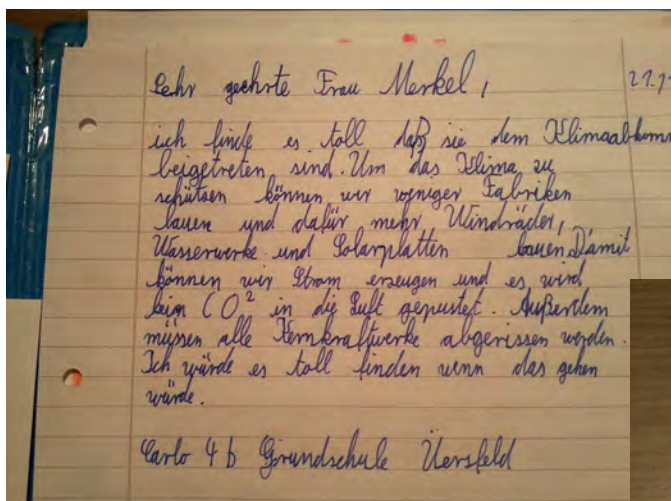 Sehr geehrte Frau Merkel,
ich finde es toll daß sie dem Klimaabkomm
beigetreten sind. Um das Klima zu
schützen können wir weniger Fabriken
bauen und dafür mehr Windräder,
Wasserwerke und Solarplatten bauen. Damit
können wir Strom erzeugen und es wird
kein CO² in die Luft gepustet. Außerdem
müssen alle Kernkraftwerke abgerissen werden.
Ich würde es toll finden wenn das gehen
würde.
Carlo 4b Grundschule Üersfeld